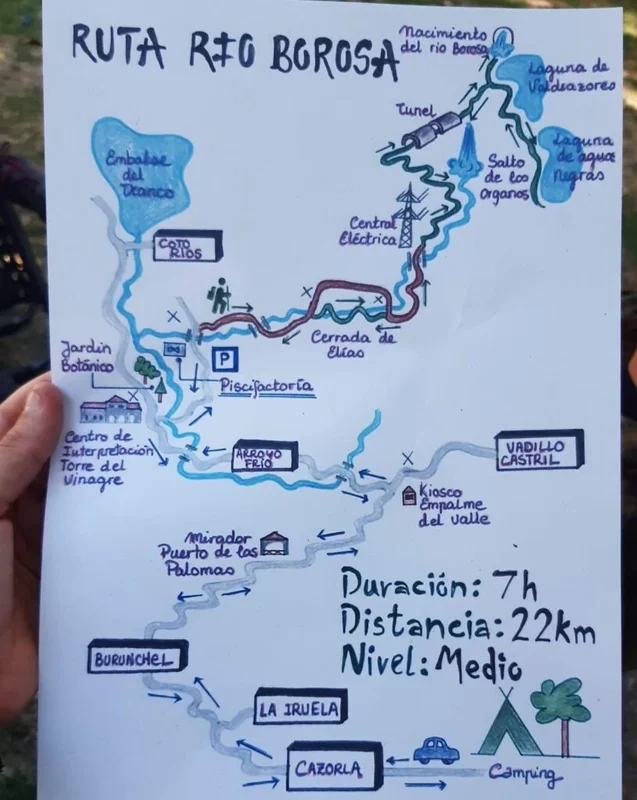 RUTA RIO BOROSA
Nacimiento
del rio Borosa
Laguna de
Valdeazores
Tunel
Laguna
de aguas
negras
Embalse
del
Tranco
Salto
de los
Organos
COTO
RIOS
Central
Eléctrica
Cerrada de
Elías
Jardín
Botánico
P
Piscifactoría
Centro de
Interpretación
Torre del
Vinagre
ARROYO
FRIO
VADILLO
CASTRIL
Kiosco
Empalme
del valle
Mirador
Puerto de las
Palomas
Duración: 7h
Distancia: 22km
Nivel: Medio
BURUNCHEL
LA IRUELA
CAZORLA
Camping